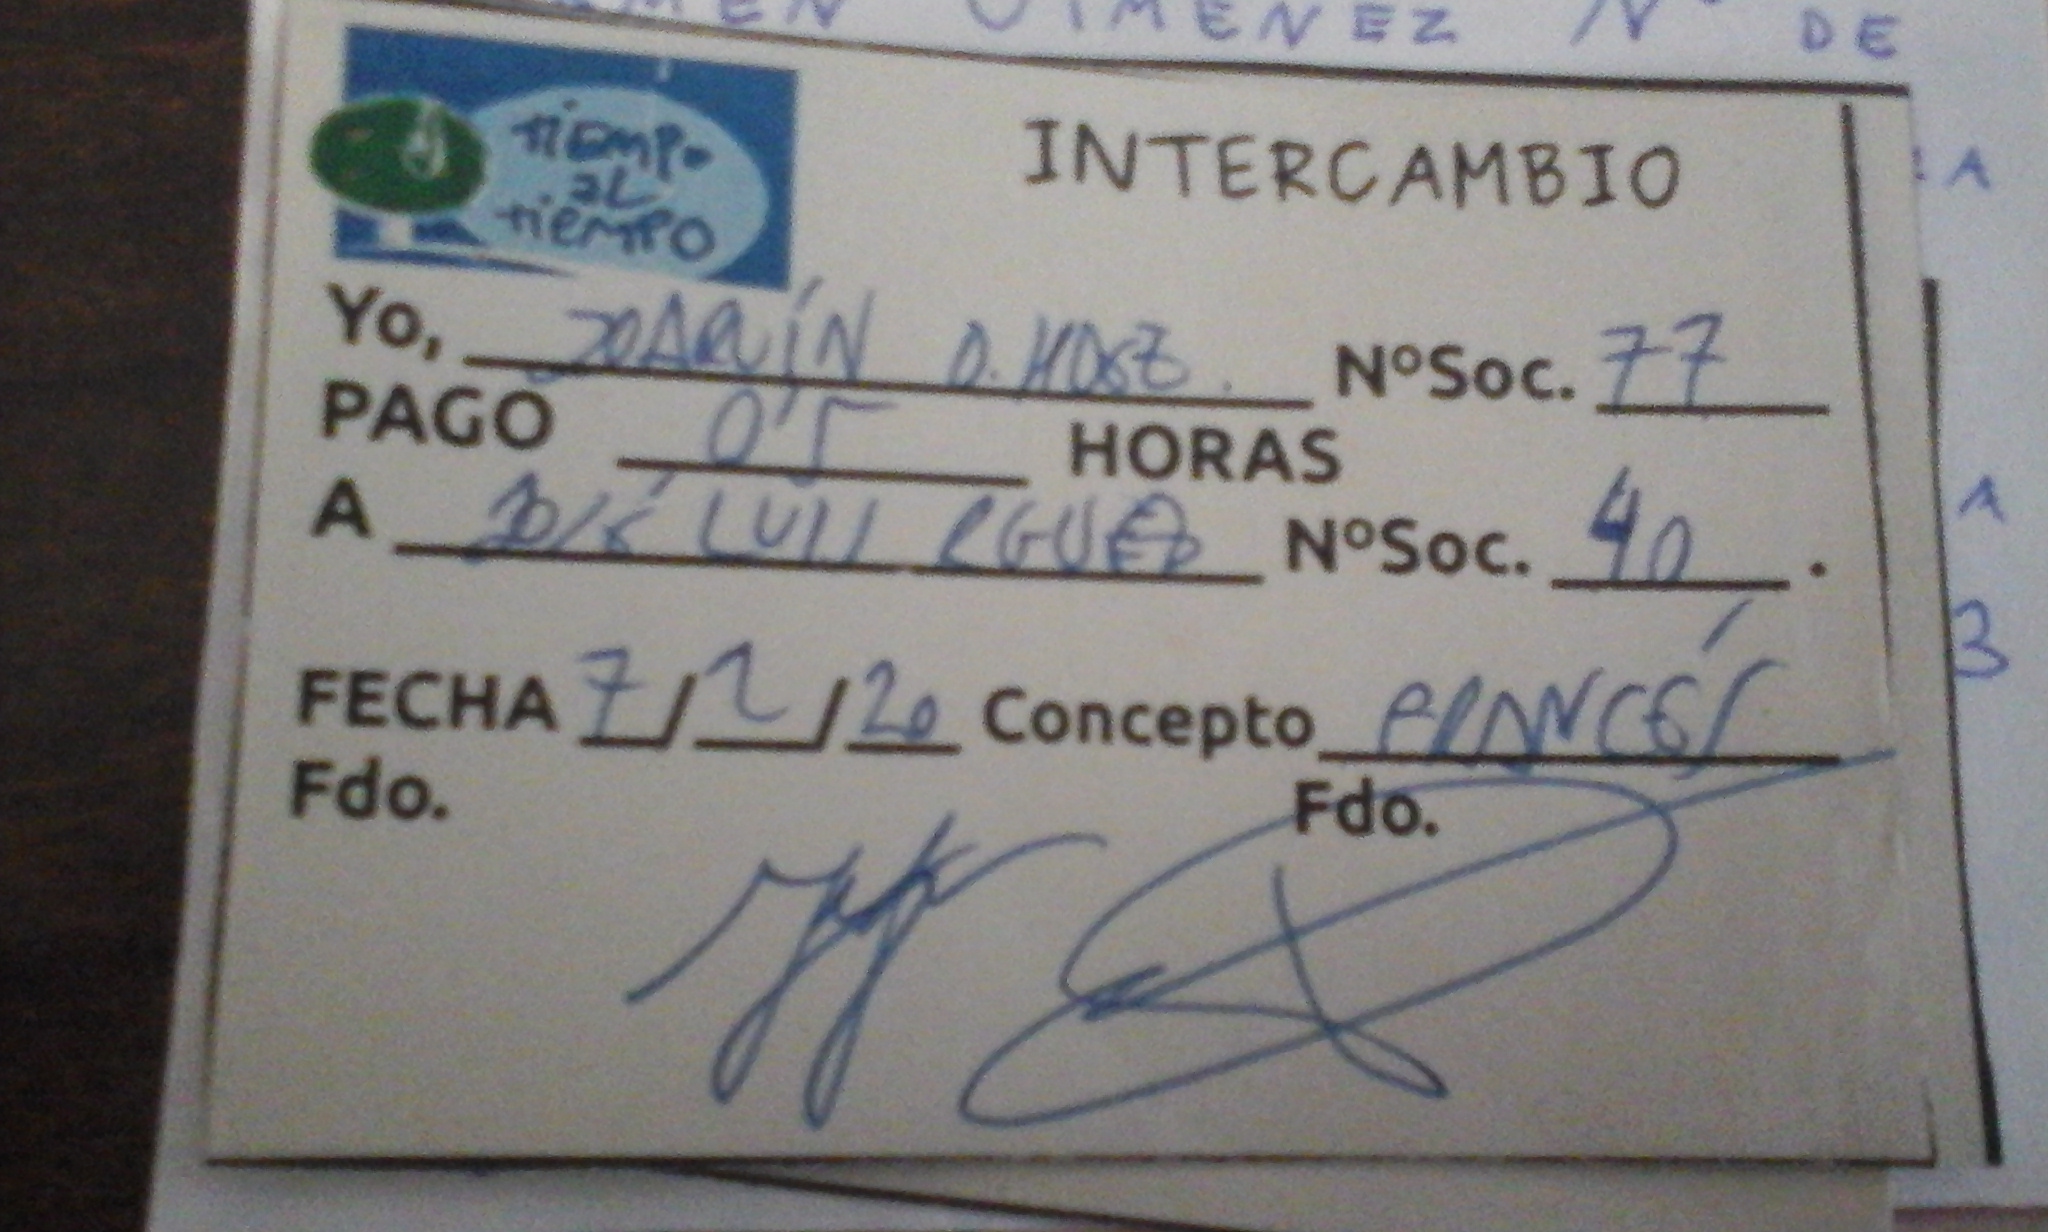 MEN JIMENEZ Nº DE
TIEMPO
AL
TIEMPO
INTERCAMBIO
Yo, JOAQUÍN D. NºSoc. 77
PAGO 0'5 HORAS
A JOSÉ LUIS RGUEZ NºSoc. 40.
FECHA 7/2/20 Concepto FRANCÉS
Fdo. Fdo.
A
A
3